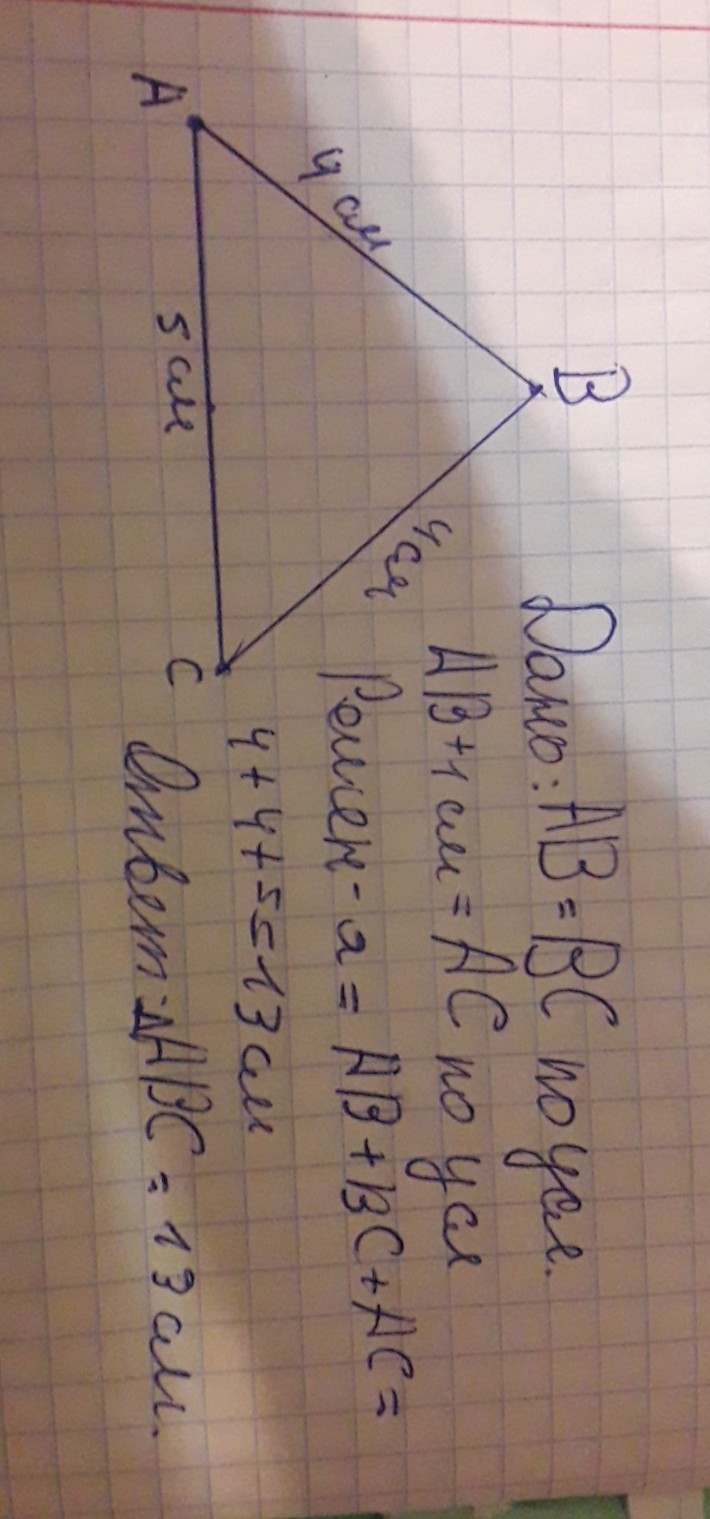 B
4 см
4 см
A
5 см
C
Дано: AB = BC по усл.
AB+1 см = AC по усл
Решен-я = AB + BC + AC =
4+4+5=13 см
Ответ: ΔABC = 13 см.